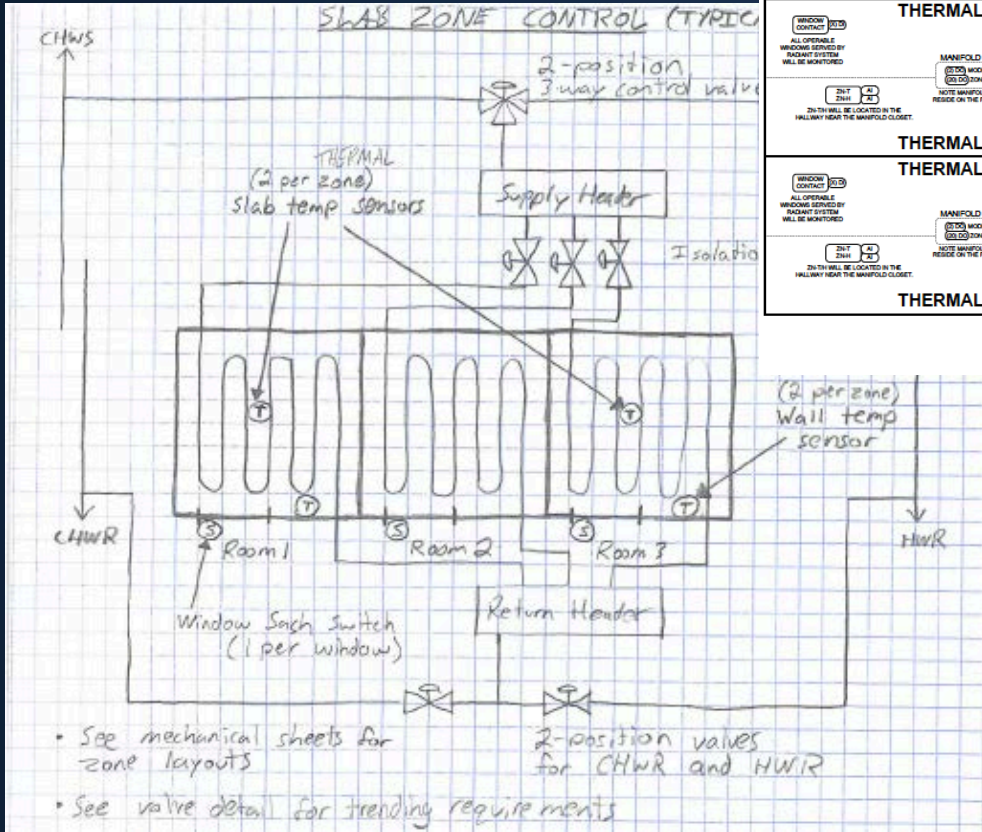 SLAB ZONE CONTROL (TYPIC
CHWS
2-position
3-way control valve
THERMAL
(2 per zone)
Slab temp sensors
Supply Header
Isolatio
T
T
(2 per zone)
Wall temp
sensor
T
T
S
S
S
CHWR
Room 1
Room 2
Room 3
HWR
Return Header
Window Sash Switch
(1 per window)
• See mechanical sheets for
zone layouts
2-position valves
for CHWR and HWR
• See valve detail for trending requirements
THERMAL
WINDOW
CONTACT
(X) DI
ALL OPERABLE
WINDOWS SERVED BY
RADIANT SYSTEM
WILL BE MONITORED
MANIFOLD
(2) DO MOD
(20) DO ZON
NOTE MANIFOL
RESIDE ON THE
ZN-T AI
ZN-H AI
ZN-T/H WILL BE LOCATED IN THE
HALLWAY NEAR THE MANIFOLD CLOSET.
THERMAL
THERMAL
WINDOW
CONTACT
(X) DI
ALL OPERABLE
WINDOWS SERVED BY
RADIANT SYSTEM
WILL BE MONITORED
MANIFOLD
(2) DO MOD
(20) DO ZON
NOTE MANIFOL
RESIDE ON THE
ZN-T AI
ZN-H AI
ZN-T/H WILL BE LOCATED IN THE
HALLWAY NEAR THE MANIFOLD CLOSET.
THERMAL